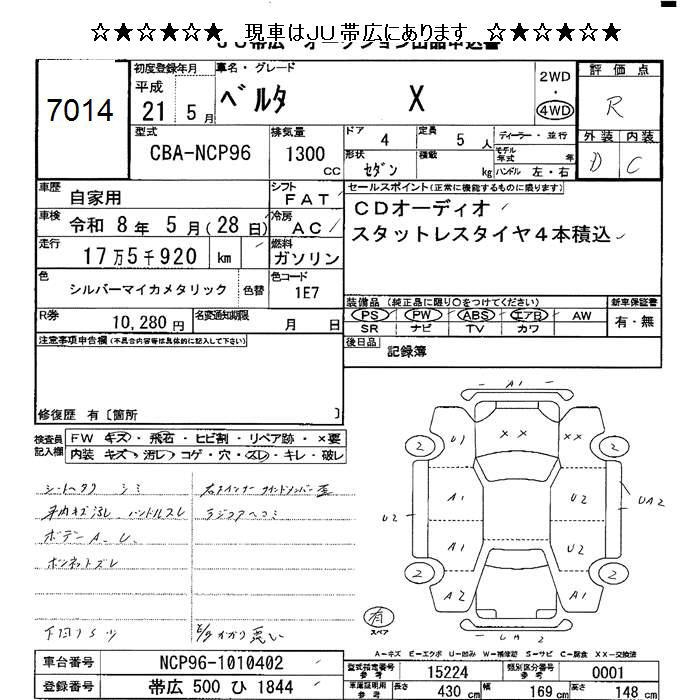 ☆★☆★☆★☆ 現車はJU帯広にあります ☆★☆★☆★☆
JU帯広 オークション出品申込書
7014
初度登録年月
平成
21 5 月
車名・グレード
ベルタ X
2WD
・
4WD
評価点
R
外装 内装
D C
型式
CBA-NCP96
排気量
1300
CC
ドア
4
定員
5 人
ディーラー・並行
形状
セダン
積載
kg
モデル年式 年
ハンドル 左・右
車歴
自家用
シフト
FAT
車検
令和 8年 5月(28日)
冷房
AC
走行
17万5千920 km
燃料
ガソリン
色
シルバーマイカメタリック
色替
色コード
1E7
セールスポイント(正常に機能するものに限ります)
CDオーディオ
スタットレスタイヤ4本積込
R券
10,280円
名変通知期限
月 日
装備品 (純正品に限り○をつけてください)
PS PW ABS エアB AW
SR ナビ TV カワ
新車保証書
有・無
注意事項申告欄(不具合内容等は具体的に記入して下さい)
後日品
記録簿
修復歴 有〔箇所 〕
検査員記入欄
FW キズ・飛石・ヒビ割・リペア跡・×要
内装 キズ・汚レ・コゲ・穴・スレ・キレ・破レ
シートヘタリ シミ
車内キズ汚レ ハンドルスレ
ボデーA、U、
ボンネットズレ
ラジコアヘコミ
A1
U1
××
××
2
2
A1
U2
U2
UA2
A1
U2
2
2
A2
A2
有
スペア
A-キズ E-エクボ U-凹み W-補修跡 S-サビ C-腐食 XX-交換済
車台番号
NCP96-1010402
登録番号
帯広 500 ひ 1844
型式指定番号
参考
15224
類別区分番号
参考
0001
車庫証明用
参考
長さ
430 cm
幅
169 cm
高さ
148 cm